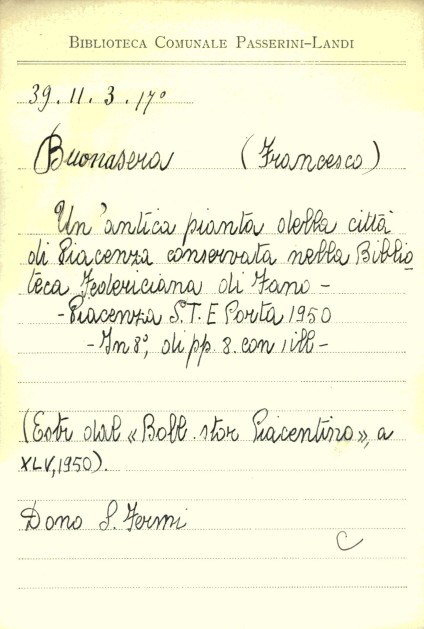 BIBLIOTECA COMUNALE PASSERINI-LANDI
39.11.3.17º
Buonasera (Francesco)
Un'antica pianta della città
di Piacenza conservata nella Biblio
teca Federiciana di Fano -
- Piacenza S.T.E Porta 1950
- In 8º, di pp. 8. con ill -
(Estr dal « Boll. stor Piacentino », a
XLV, 1950).
Dono S. Fermi
C